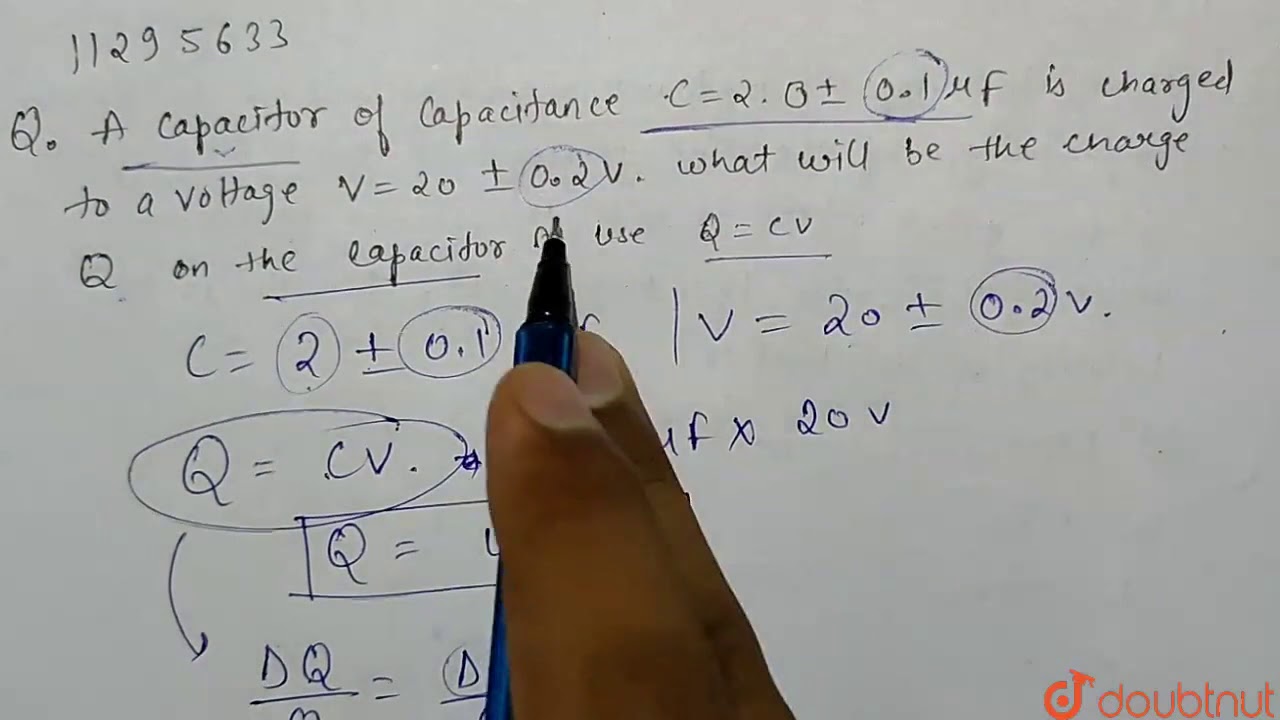 11295633
Q. A capacitor of capacitance C = 2.0 ± 0.1 μF is charged
to a voltage V = 20 ± 0.2 V. what will be the charge
Q on the capacitor use Q = CV
C = 2 ± 0.1 | V = 20 ± 0.2 V.
Q = CV. μF × 20 V
Q =
ΔQ =
doubtnut